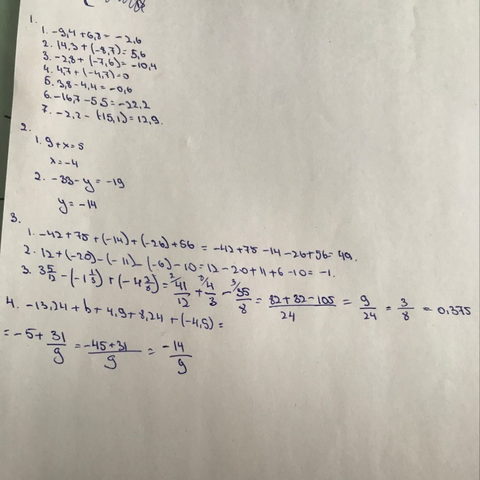 1.
1. -9,4 + 6,8 = -2,6
2. 14,3 + (-8,7) = 5,6
3. -2,8 + (-7,6) = -10,4
4. 4,7 + (-4,7) = 0
5. 3,8 - 4,4 = -0,6
6. -16,7 - 5,5 = -22,2
7. -2,2 - (-15,1) = 12,9.
2.
1. 9 + x = 5
x = -4
2. -33 - y = -19
y = -14
3.
1. -42 + 75 + (-14) + (-26) + 56 = -42 + 75 - 14 - 26 + 56 = 49.
2. 12 + (-20) - (-11) - (-6) - 10 = 12 - 20 + 11 + 6 - 10 = -1.
3. 3 5/12 - (-1 1/3) + (-4 3/8) = 41/12 + 4/3 - 35/8 = 82 + 32 - 105/24 = 9/24 = 3/8 = 0,375
4. -13,24 + b + 4,9 + 8,24 + (-4,5) =
= -5 + 31/9 = -45 + 31/9 = -14/9